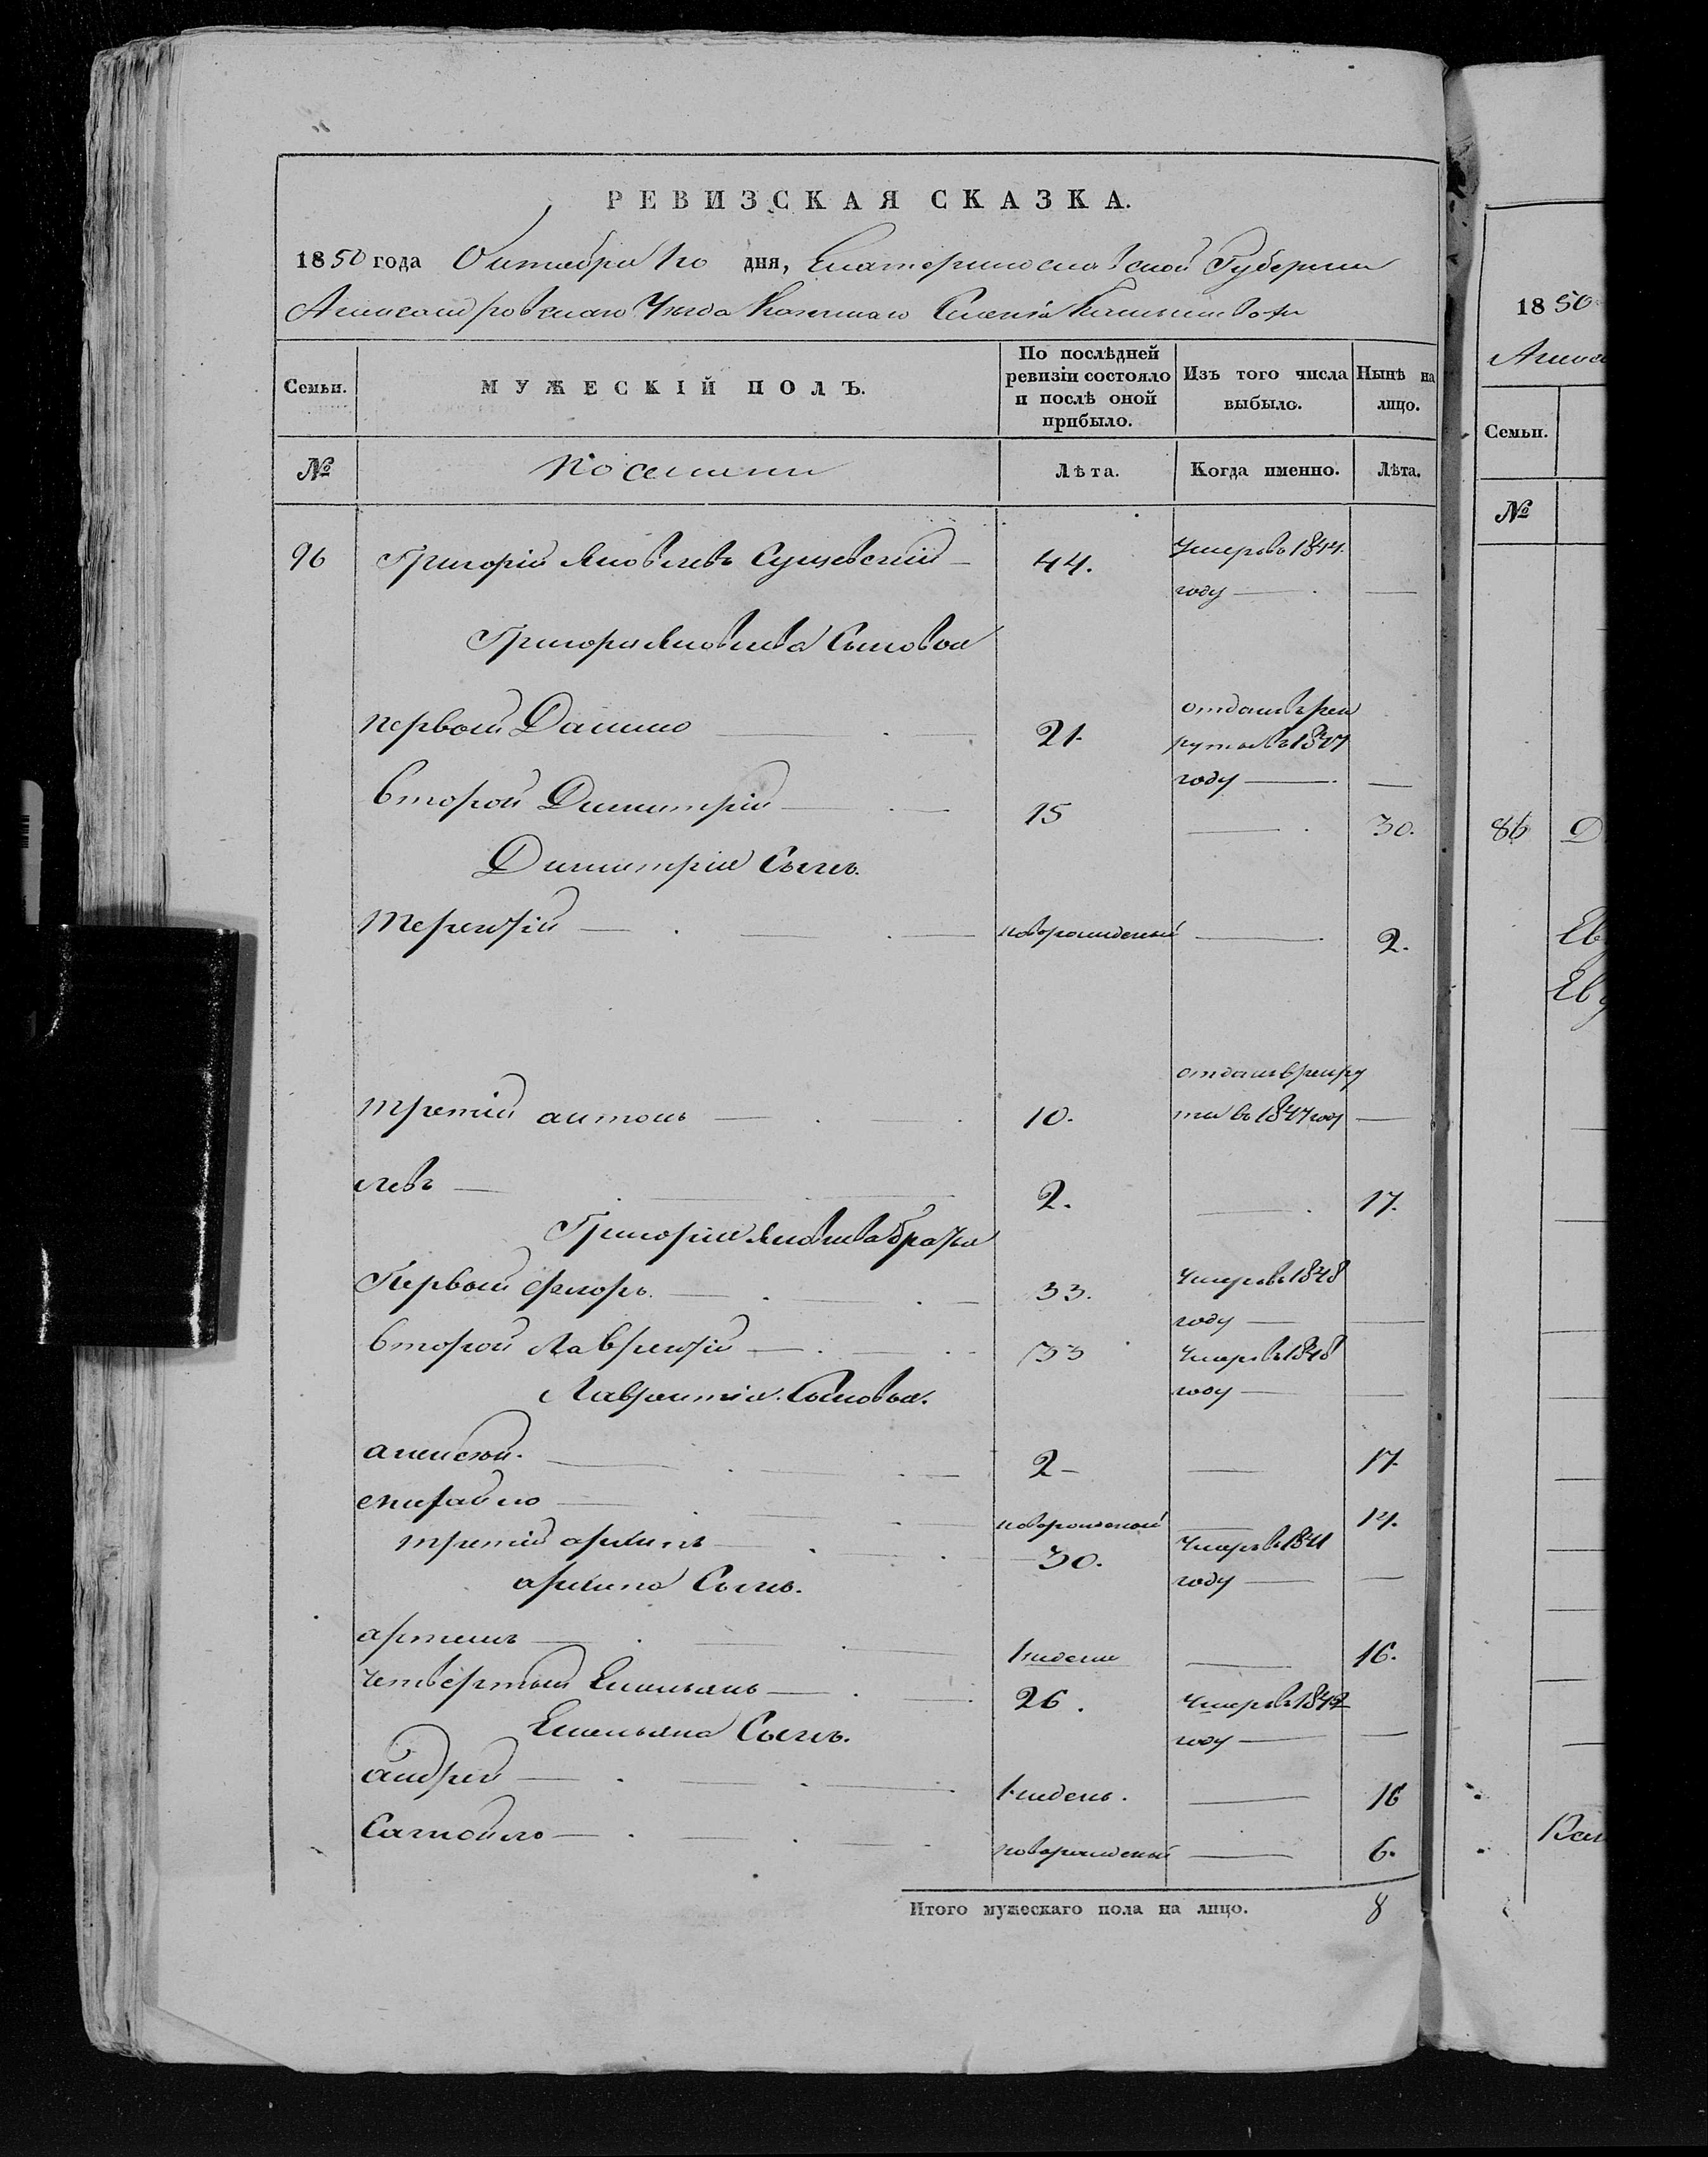 РЕВИЗСКАЯ СКАЗКА.
1850 года Октября 1го дня, Екатеринославской Губернии
Александровскаго Уезда Казеннаго Селения
Семьи. МУЖЕСКІЙ ПОЛЪ. По послѣдней ревизіи состояло и послѣ оной прибыло. Изъ того числа выбыло. Нынѣ на лицо.
№ Лѣта. Когда именно. Лѣта.
96 Григорій Яковлевъ Сущевский 44. Умеръ въ 1844.
году
Григория Яковлева Сыновья
первой Данило 21. отданъ въ рек
руты въ 1847
году
второй Димитрій 15 30.
Димитрія Сынъ.
Терентій новорожденый 2.
отданъ в рекру
третій антонъ 10. ты въ 1847 году
левъ 2. 17.
Григорія Яковлева братья
Первый Флоръ. 33. Умеръ въ 1848
году
второй Лаврентій 33 Умеръ въ 1848
году
Лаврентія Сыновья.
алексей. 2 17.
гаврило новорожденый 14.
третій архипъ 30. Умеръ въ 1841
году
архипа Сынъ.
артемъ 1 недели 16.
четвертый Емельянъ 26. Умеръ въ 1842
году
Емельяна Сынъ.
андрей 1 недель. 16
Самойло новорожденый 6.
Итого мужескаго пола на лицо. 8
1850
Семьи.
№
86